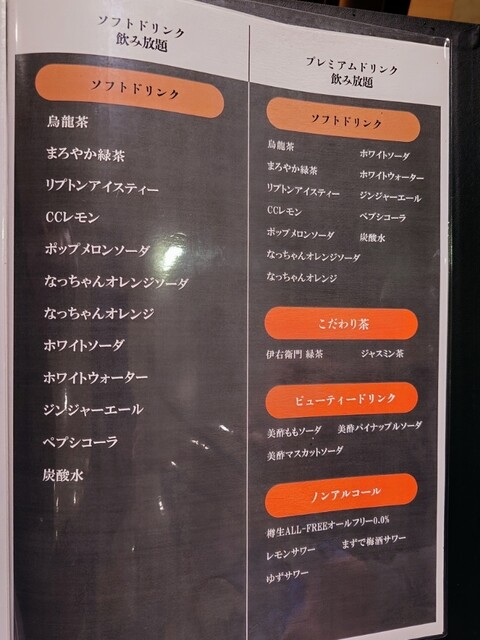 ソフトドリンク
飲み放題
ソフトドリンク
烏龍茶
まろやか緑茶
リプトンアイスティー
CCレモン
ポップメロンソーダ
なっちゃんオレンジソーダ
なっちゃんオレンジ
ホワイトソーダ
ホワイトウォーター
ジンジャーエール
ペプシコーラ
炭酸水
プレミアムドリンク
飲み放題
ソフトドリンク
烏龍茶 ホワイトソーダ
まろやか緑茶 ホワイトウォーター
リプトンアイスティー ジンジャーエール
CCレモン ペプシコーラ
ポップメロンソーダ 炭酸水
なっちゃんオレンジソーダ
なっちゃんオレンジ
こだわり茶
伊右衛門 緑茶 ジャスミン茶
ビューティードリンク
美酢ももソーダ 美酢パイナップルソーダ
美酢マスカットソーダ
ノンアルコール
樽生ALL-FREEオールフリー0.0%
レモンサワー まずで梅酒サワー
ゆずサワー